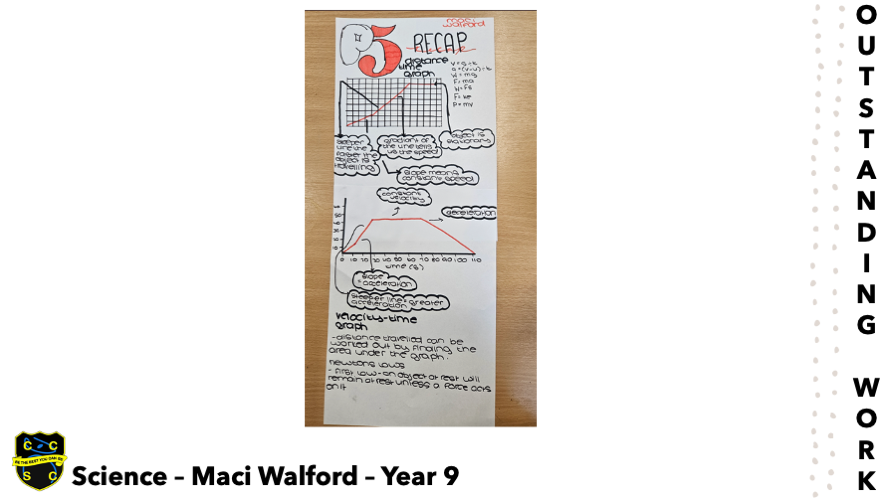 Maci
Walford
5 RECAP
distance
time
graph
v = s ÷ t
a = (v-u) ÷ t
W = mg
F = ma
F = ke
p = mv
steeper
line the
gradient of
the line tells
us the speed
object is
stationary
slope means
constant speed
constant
velocity
deceleration
0 10 20 30 40 50 60 70 80 90 100 110
time (s)
slope
= acceleration
steeper line = greater
acceleration
velocity-time
graph
- distance travelled can be
worked out by finding the
area under the graph.
newtons laws
- first law - an object at rest will
remain at rest unless a force acts
on it
C C
BE THE BEST YOU CAN BE
S C
Science – Maci Walford – Year 9
OUTSTANDING
WORK